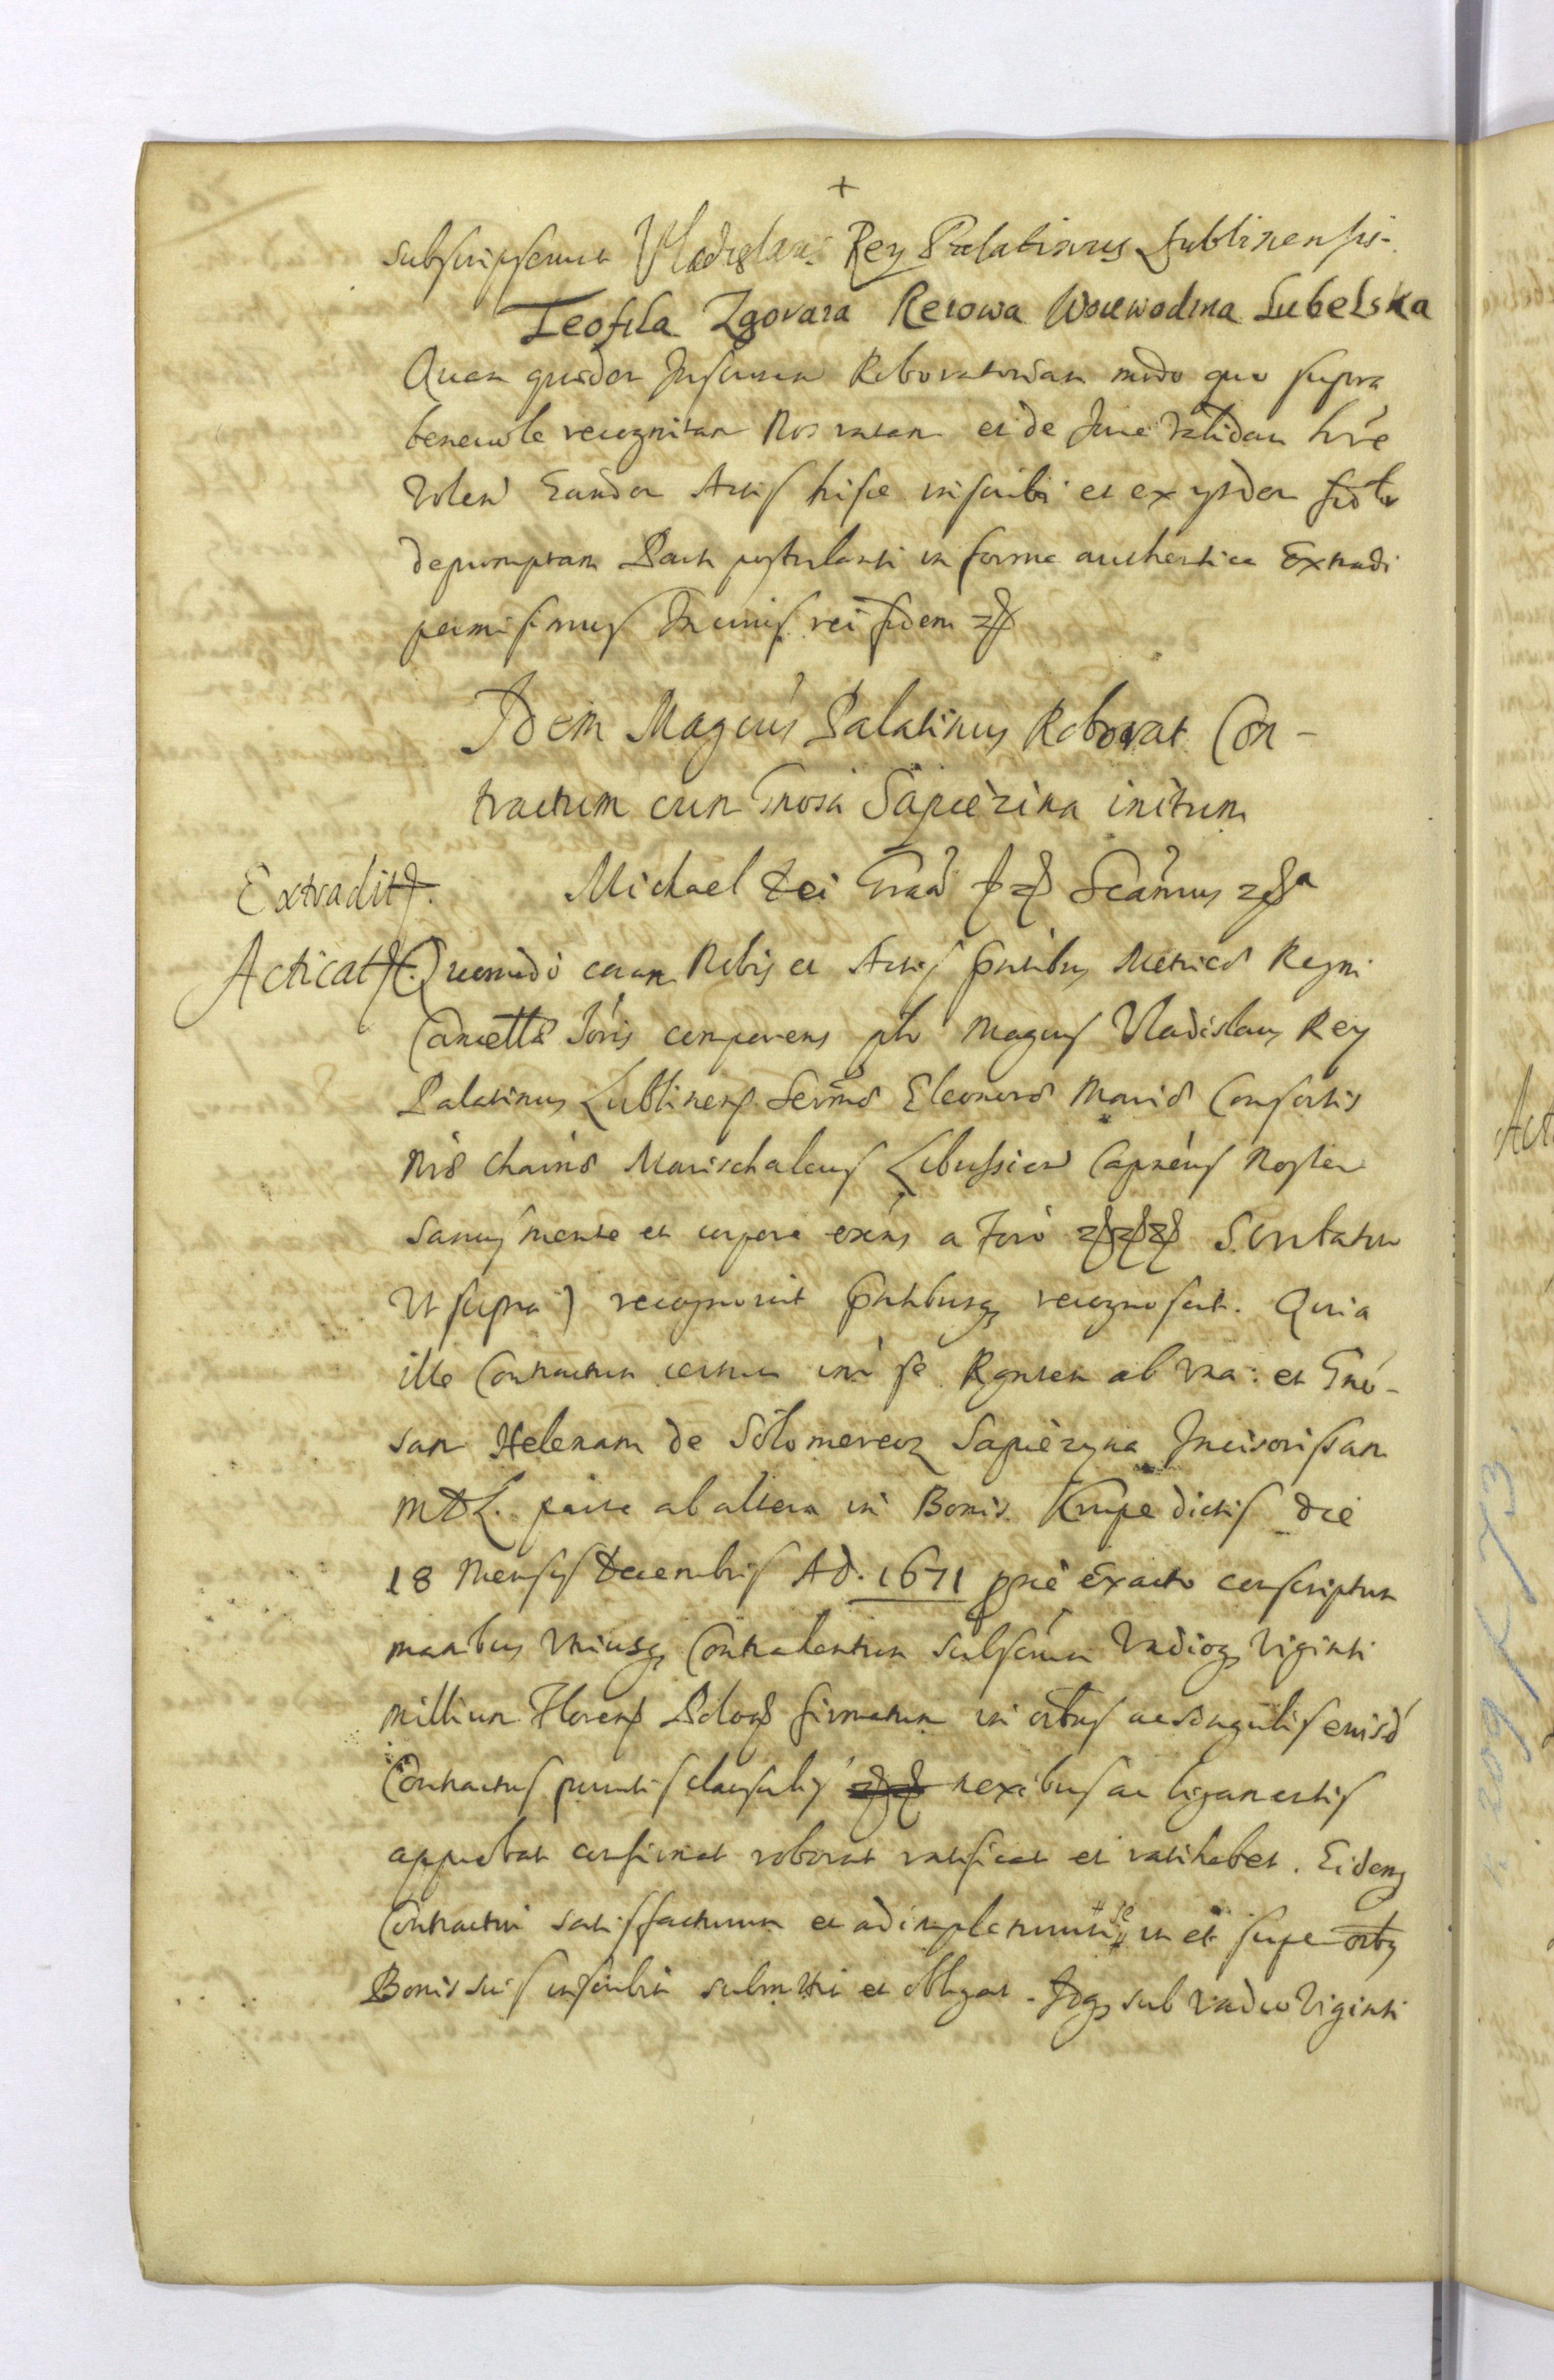 +
subscripserunt Vladislaus Rey Palatinus Lublinensis.
Teofila Zgoraia Reiowa Woiewodzina Lubelska
Quam quidem Inscrinem Roboratoriam modo quo supra
benevole recognitam Nos ratam et de Jure validam hře
volen Eandem Actis hisce inscribi et ex ysdem fidlr
depromptam Parti postulanti in forma authentica Extradi
permisimus In cuius rei fidem
Idem Magcus Palatinus Roborat Con-
tractum cum Gnosa Sapieżina initum
Extradit. Michael Dei Graâ Scamus
Acticat. Quomodo coram Nobis et Actis pntibus Metrices Regni
Cancellae Joris comparens ptr Magcus Vladislaus Rey
Palatinus Lublinens Serms Eleonorae Mariae Consortis
Nrae Charmae Marischalcus Libussien Capneus Noster
sanus mente et corpore exens a Foro Scrutatur
Ut supra) recognovit pntibusq recognoscit. Quia
ille Contractum certum inr se Rgntem ab una: et Gnó-
sam Helenam de Sołomerecz Sapieżyna Incisorissam
MDL. parte ab altera in Bonis Krupe dictis die
18 Mensis Decembris AD. 1671 pnie Exacto conscriptum
manibus Utriusq Contrahentium subscrum Vadioq Viginti
millium Florens Polos firmatum in oibus ac singulis eiusd
Contractus punctis clausulis nexibus ac ligamentis
approbat confirmat roborat ratificat et ratihabet. Eidemq
Contractui satisfacturum et adimpleturum se in et super oibq
Bonis suis inscribit submittit et obligat. Idq sub vadio Viginti